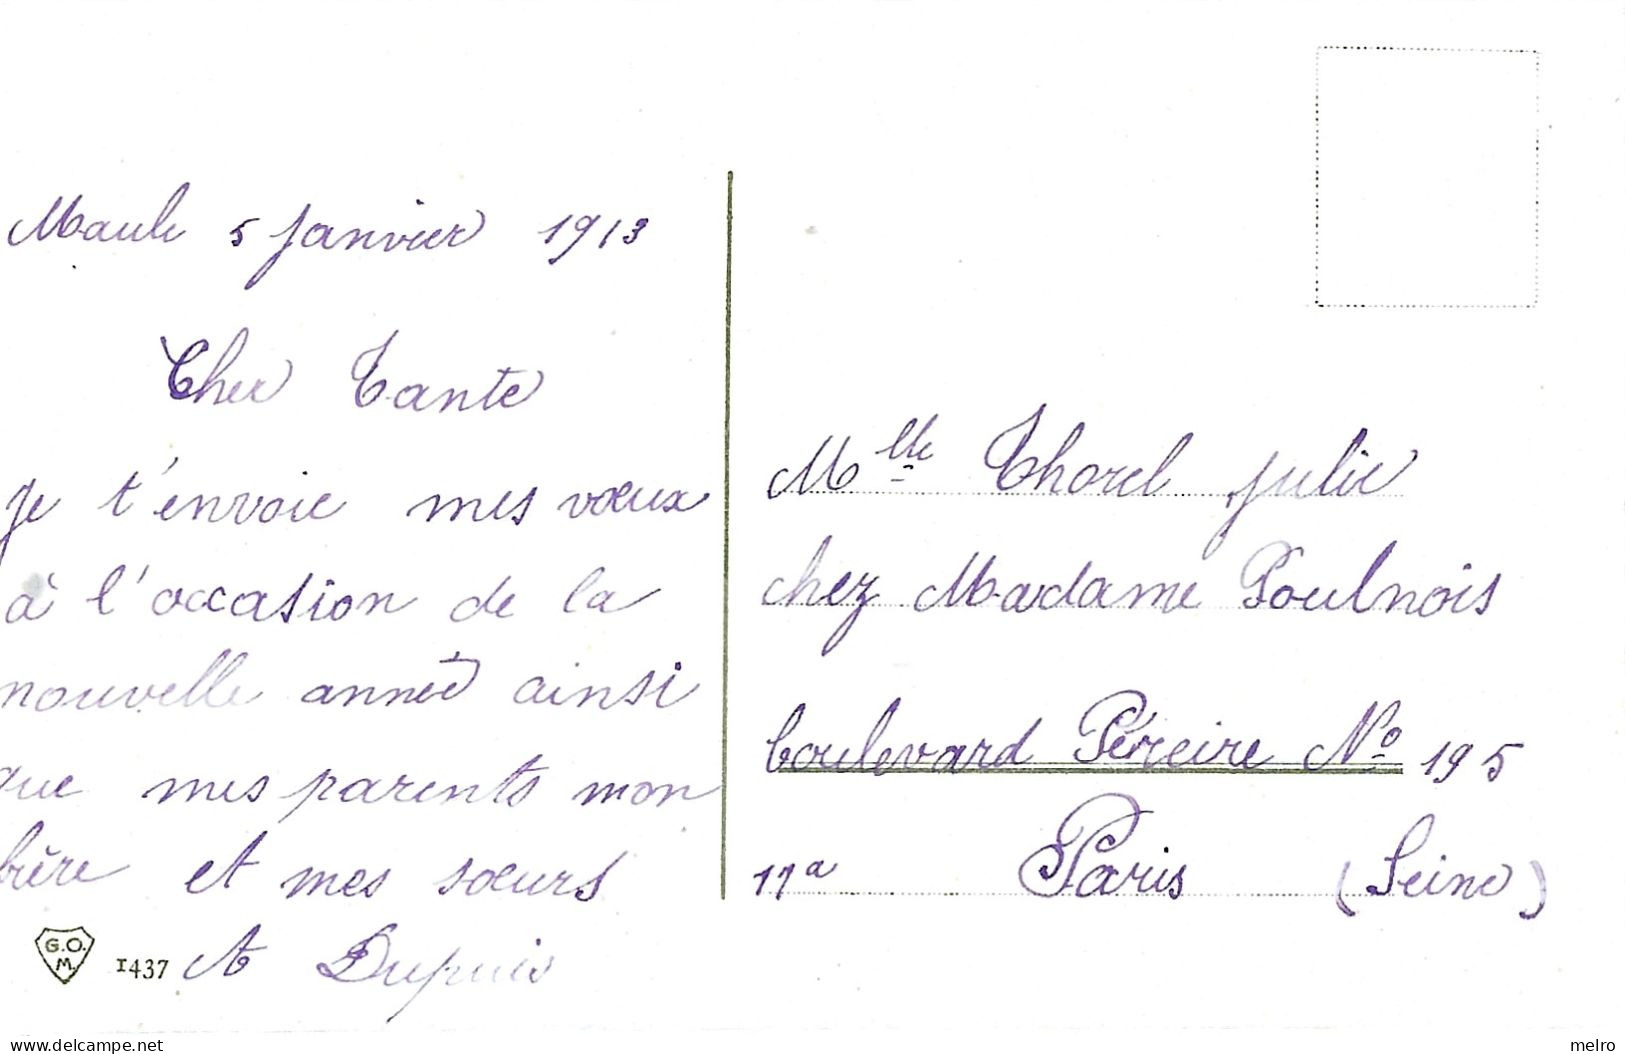 Maule 5 Janvier 1913
Cher Tante
je t'envoie mes vœux
à l'occasion de la
nouvelle année ainsi
que mes parents mon
frère et mes sœurs
A Dupuis
G.O.
M.
1437
Mlle Thorel Julie
chez Madame Poulnois
boulevard Péreire No 195
11a Paris (Seine)
delcampe.net
melro